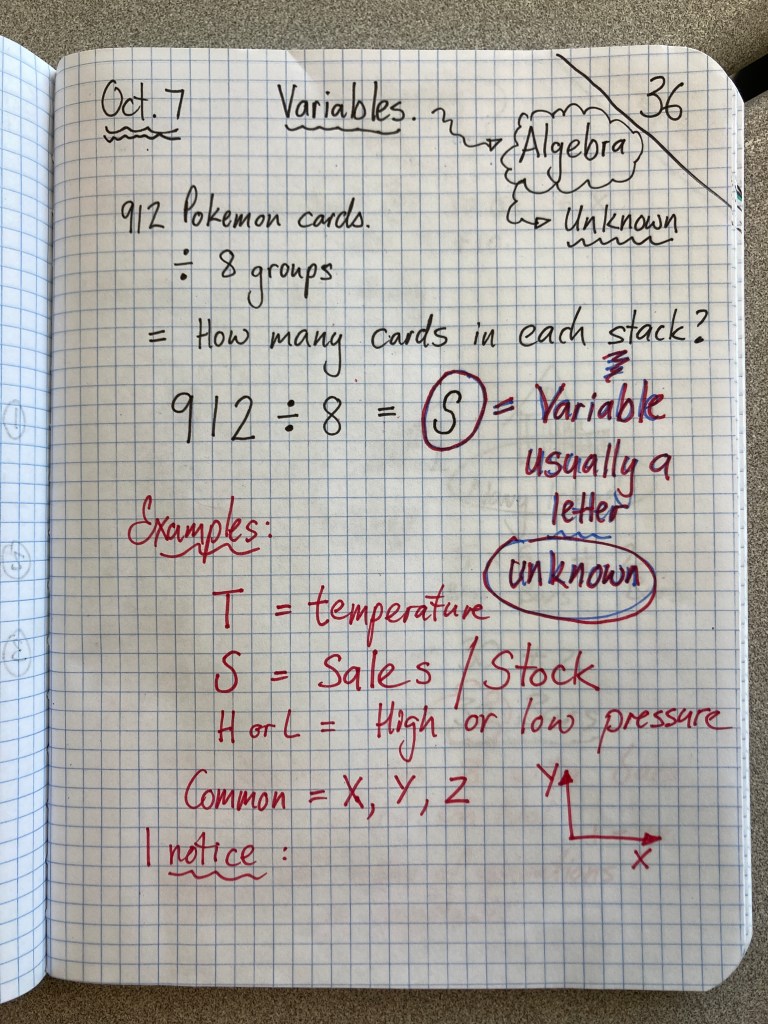 Oct. 7 Variables. 36
Algebra
Unknown
912 Pokemon cards.
÷ 8 groups
= How many cards in each stack?
912 ÷ 8 = S = Variable
usually a
letter
unknown
Examples:
T = temperature
S = Sales / Stock
H or L = High or low pressure
Common = X, Y, Z
Y
X
I notice :